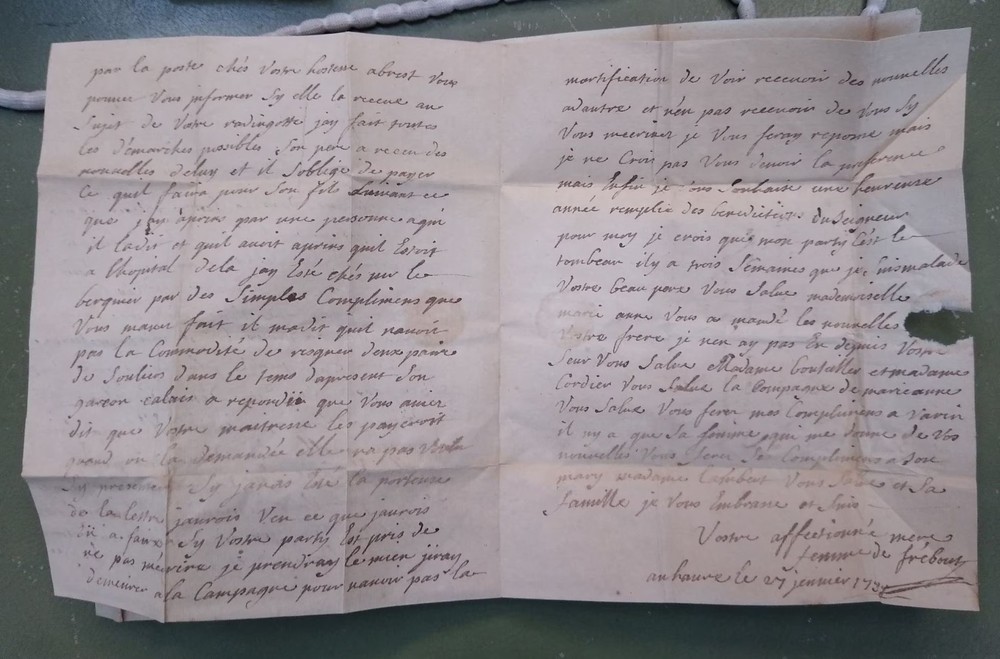 par la poste chés Vostre hostesse abrest vous
pouvez Vous informer Sy elle la receue au
Sujet de Votre radingotte jay fait toutes
les démarches possibles Son pere a receu des
nouvelles deluy et il Soblige de payer
Ce quil faura pour Son fils Suivant ce
que jay apris par une personne aqui
il ladit et quil avoit apris quil Estoit
a lhopital dela jay Esté chés mr le
berquier par des Simples Complimens que
Vous mavez fait il madit quil navoit
pas la Commodité de risquer deux paire
de Souliers dans le tems dapresent Son
garcon calais a repondu que Vous aviez
dit que Vostre maitresse les payeroit
quand on la demandée elle na pas Voulu
Sy presenter Sy javais Esté la porteuse
de la lettre jaurois Veu ce que jaurois
à faux Sy Vostre party Est pris de
ne pas mécrire je prendray le mien jiray
demeurer a la Campagne pour navoir pas la
mortification de Voir recevoir des nouvelles
adautre et nen pas recevoir de Vous Sy
Vous mecrivez je Vous feray reponse mais
je ne Crois pas Vous devoir la preference
mais Enfin je Vous Souhaite une heureuse
année remplie des benedictions du Seigneur
pour moy je crois que mon party Cest le
tombeau il y a trois Semaines que je Suis malade
Vostre beau pere Vous Salue mademoiselle
marie anne Vous a mandé les nouvelles
Vostre frere je nen ay pas Eu depuis Vostre
Seur Vous Salue Madame bouteiller et madame
Cordier Vous Salue la Compagne de marieanne
Vous Salue Vous ferez mes Complimens a Varin
il ny a que Sa femme qui me donne de Vos
nouvelles Vous ferez Ses Complimens a Son
mary madame lambert Vous Salue et Sa
famille je Vous Embrasse et Suis
Vostre affectionné mere
femme de frebourg
au havre le 27 jenvier